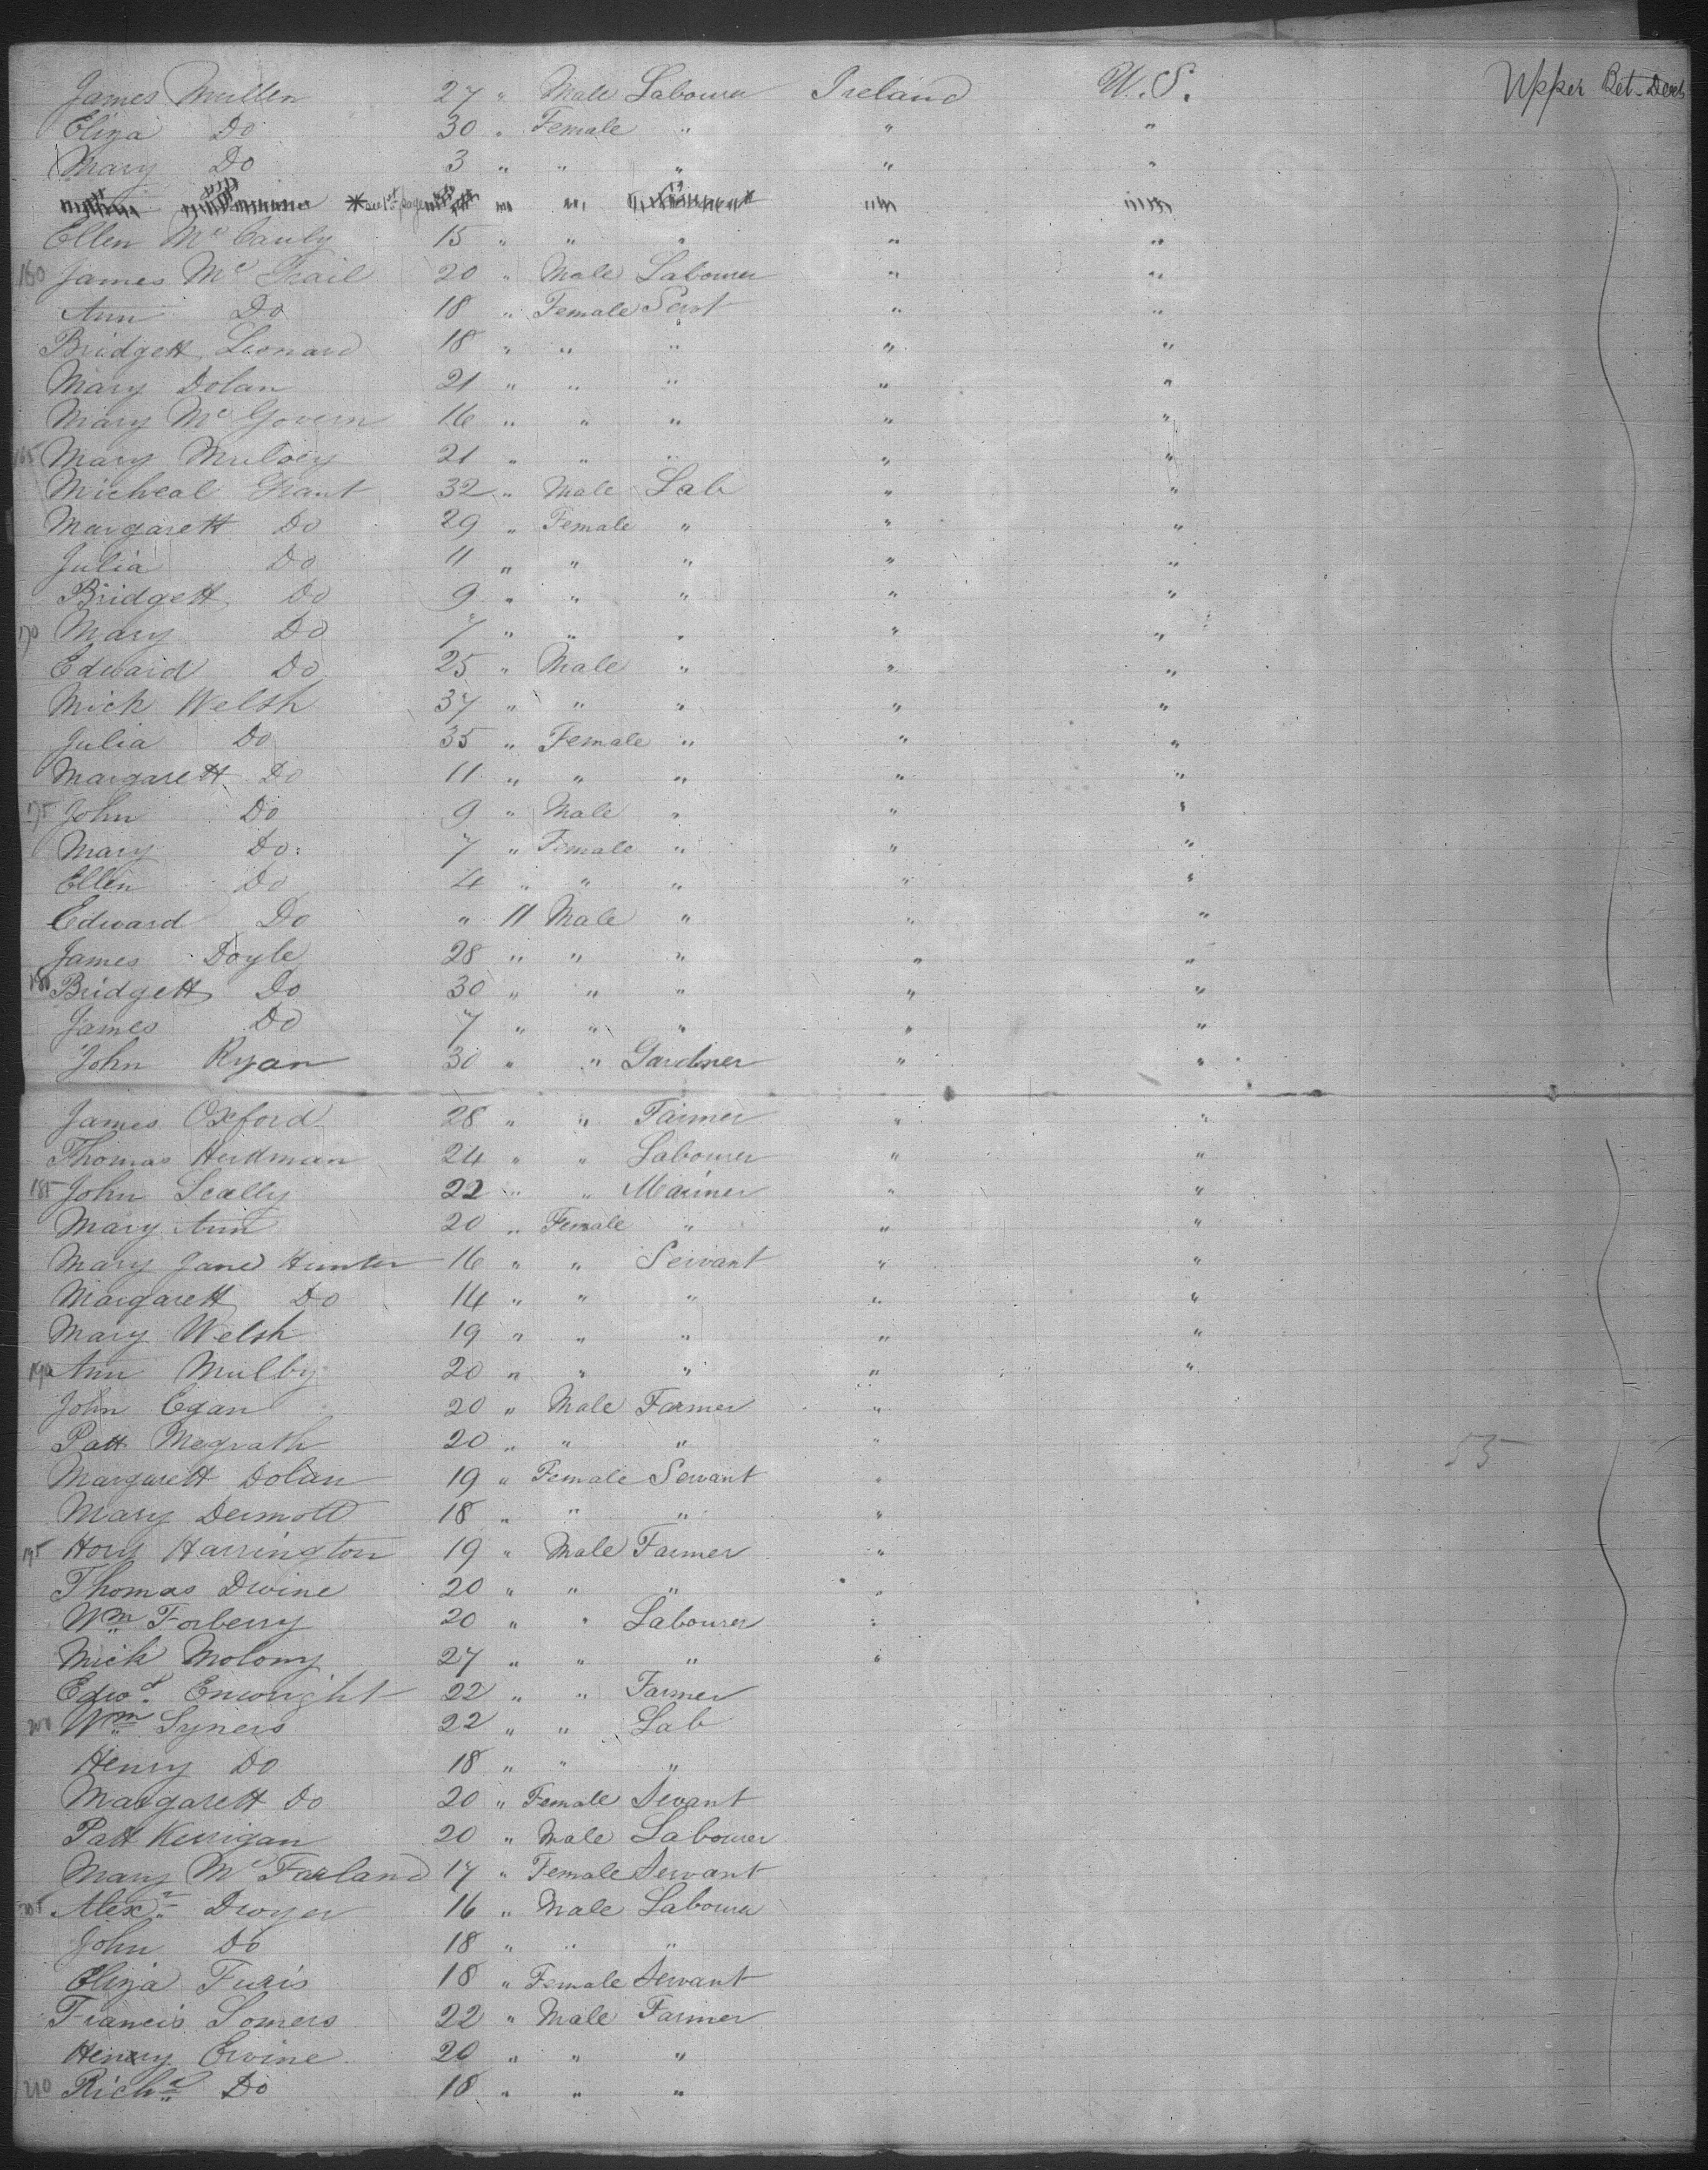 James Mullen 27 " Male Labourer Ireland U.S. Upper Bet. Decks
Eliza Do 30 " Female " " "
Mary Do 3 " " " " "
Ellen McCauly 15 " " " " "
160 James McGrail 20 " Male Labourer " "
Ann Do 18 " Female Servt " "
Bridgett Leonard 18 " " " " "
Mary Dolan 21 " " " " "
Mary McGovern 16 " " " " "
165 Mary Muloey 21 " " " " "
Micheal Grant 32 " Male Lab " "
Margarett Do 29 " Female " " "
Julia Do 11 " " " " "
Bridgett Do 9 " " " " "
170 Mary Do 7 " " " " "
Edward Do 25 " Male " " "
Mick Welsh 37 " " " " "
Julia Do 35 " Female " " "
Margarett Do 11 " " " " "
175 John Do 9 " Male " " "
Mary Do 7 " Female " " "
Ellen Do 4 " " " " "
Edward Do " 11 Male " " "
James Doyle 28 " " " " "
180 Bridgett Do 30 " " " " "
James Do 7 " " " " "
John Ryan 30 " " Gardner " "
James Oxford 28 " " Farmer " "
Thomas Herdman 24 " " Labourer " "
185 John Scally 22 " " Mariner " "
Mary Ann 20 " Female " " "
Mary Jane Hunter 16 " " Servant " "
Margarett Do 14 " " " " "
Mary Welsh 19 " " " " "
190 Ann Mulby 20 " " " " "
John Egan 20 " Male Farmer "
Patt Megrath 20 " " " " 55
Margarett Dolan 19 " Female Servant "
Mary Dermott 18 " " " "
195 Hory Harrington 19 " Male Farmer "
Thomas Divine 20 " " " "
Wm Forberry 20 " " Labourer "
Mick Molony 27 " " " "
Edwd. Enwright 22 " " Farmer
200 Wm Syners 22 " " Lab
Henry Do 18 " " "
Margarett Do 20 " Female Sevant
Patt Kerrigan 20 " Male Labourer
Mary McFarland 17 " Female Servant
205 Alexr. Dwyer 16 " Male Labourer
John Do 18 " " "
Eliza Furis 18 " Female Servant
Francis Somers 22 " Male Farmer
Henry Ervine 20 " " "
210 Richd. Do 18 " " "